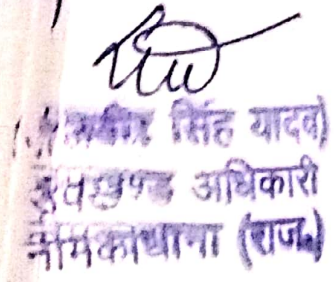 सिंह यादव)
उपखण्ड अधिकारी
नीमकाथाना (राज.)